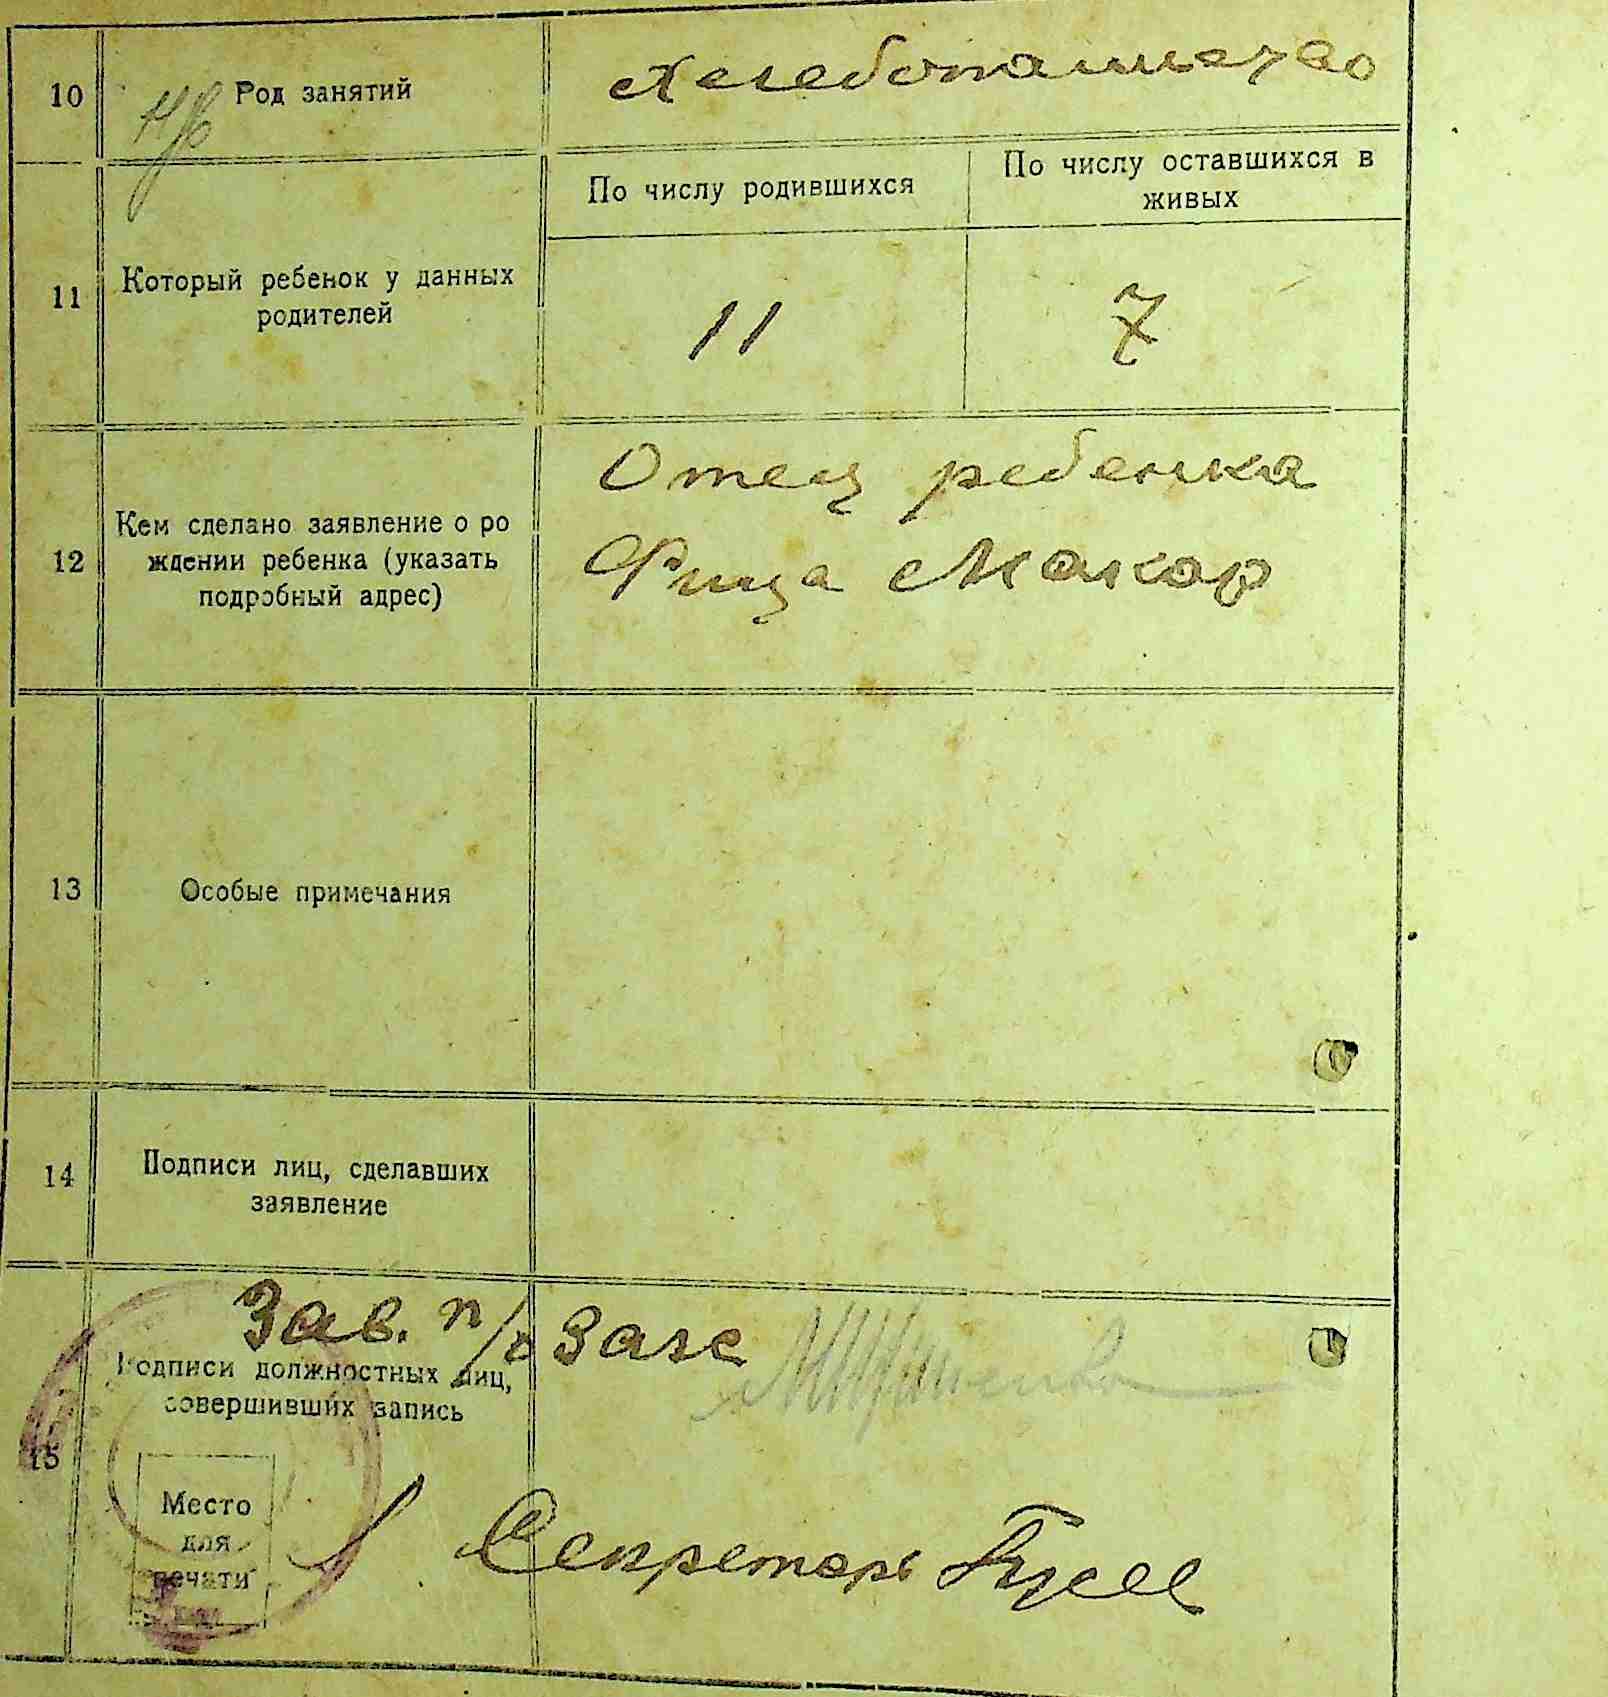 10
Род занятий
Хлебопашество
11
Который ребенок у данных
родителей
По числу родившихся
По числу оставшихся в
живых
11
7
12
Кем сделано заявление о ро
ждении ребенка (указать
подробный адрес)
Отец ребенка
Фица Макар
13
Особые примечания
14
Подписи лиц, сделавших
заявление
15
Зав. п/о Загс
Подписи должностных лиц,
совершивших запись
Место
для
печати
Секретарь